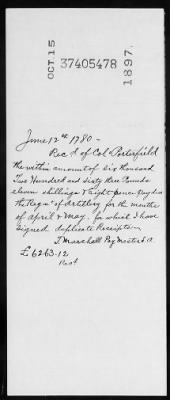 OCT. 15
37405478
1897.
June 12th 1780 -
Rec'd of Col. Porterfield
the within amount of six thousand
Two Hundred and sixty three Pounds
eleven shillings & eight pence pay due
the Regt of Artillery for the months
of April & May. for which I have
signed duplicate Receipts -
T. Marshall Pay Master S. A.
£ 6263.12